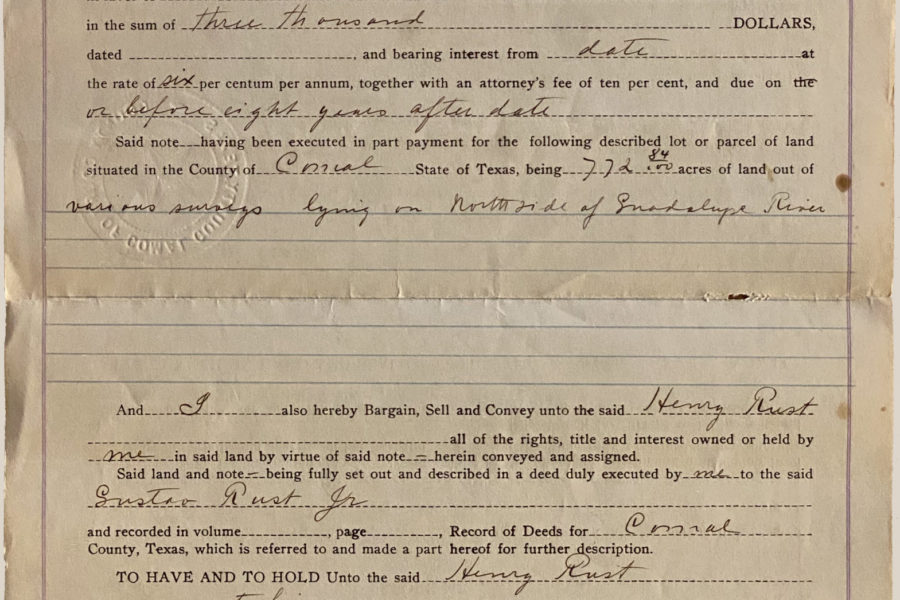 in the sum of three thousand DOLLARS,
dated , and bearing interest from date at
the rate of six per centum per annum, together with an attorney's fee of ten per cent, and due on the
or before eight years after date
Said note having been executed in part payment for the following described lot or parcel of land
situated in the County of Comal State of Texas, being 772 84/100 acres of land out of
various surveys lying on North side of Guadalupe River
And I also hereby Bargain, Sell and Convey unto the said Henry Rust
all of the rights, title and interest owned or held by
me in said land by virtue of said note — herein conveyed and assigned.
Said land and note — being fully set out and described in a deed duly executed by me to the said
Gustav Rust Jr
and recorded in volume , page , Record of Deeds for Comal
County, Texas, which is referred to and made a part hereof for further description.
TO HAVE AND TO HOLD Unto the said Henry Rust